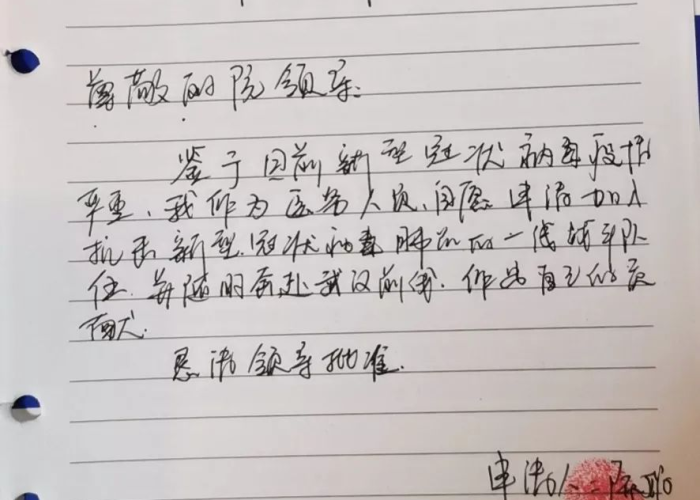 尊敬的院领导:
鉴于目前新型冠状病毒疫情
严重、我作为医务人员,自愿申请加入
抗击新型冠状病毒肺炎的一线战斗队
伍.并随时奔赴武汉前线.作出自己的贡
献.
恳请领导批准.
申请人: